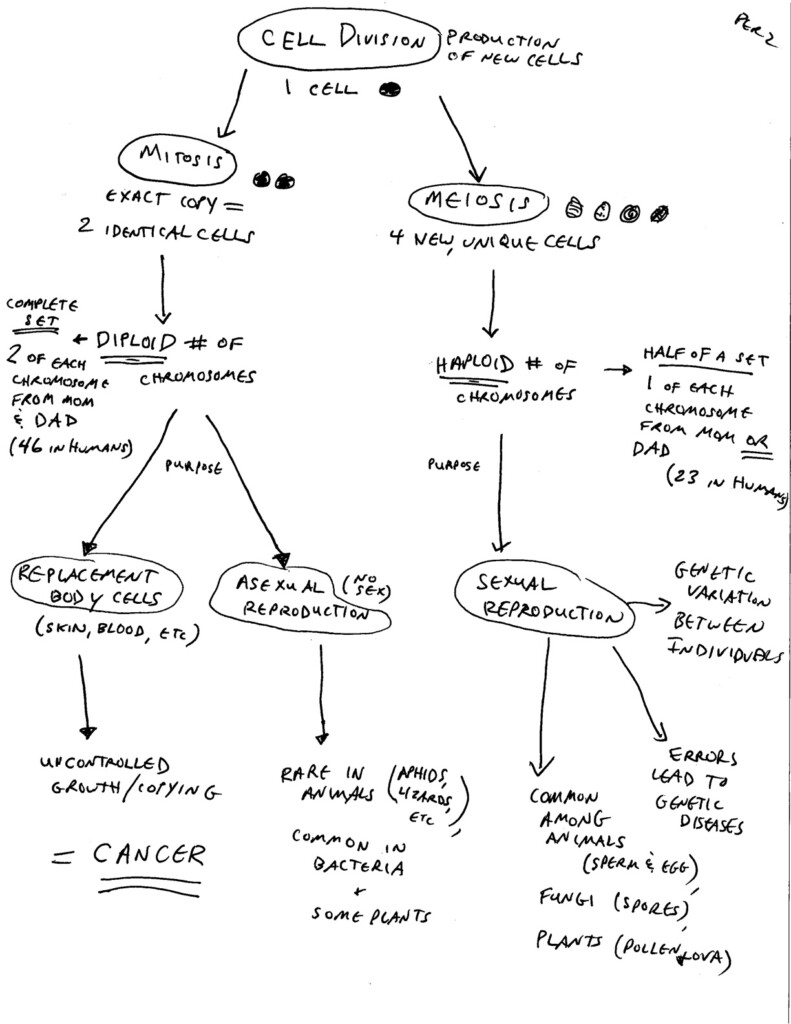 PER 2
CELL DIVISION
PRODUCTION
OF NEW CELLS
1 CELL
MITOSIS
EXACT COPY =
2 IDENTICAL CELLS
MEIOSIS
4 NEW, UNIQUE CELLS
COMPLETE
SET
2 OF EACH
CHROMOSOME
FROM MOM
& DAD
(46 IN HUMANS)
DIPLOID # OF
CHROMOSOMES
HAPLOID # OF
CHROMOSOMES
HALF OF A SET
1 OF EACH
CHROMOSOME
FROM MOM OR
DAD
(23 IN HUMANS)
PURPOSE
PURPOSE
REPLACEMENT
BODY CELLS
(SKIN, BLOOD, ETC)
ASEXUAL
REPRODUCTION
(NO
SEX)
SEXUAL
REPRODUCTION
GENETIC
VARIATION
BETWEEN
INDIVIDUALS
UNCONTROLLED
GROWTH/COPYING
= CANCER
RARE IN
ANIMALS
(APHIDS,
LIZARDS,
ETC),
COMMON IN
BACTERIA
+
SOME PLANTS
COMMON
AMONG
ANIMALS
(SPERM & EGG),
FUNGI (SPORES),
PLANTS (POLLEN + OVA)
ERRORS
LEAD TO
GENETIC
DISEASES